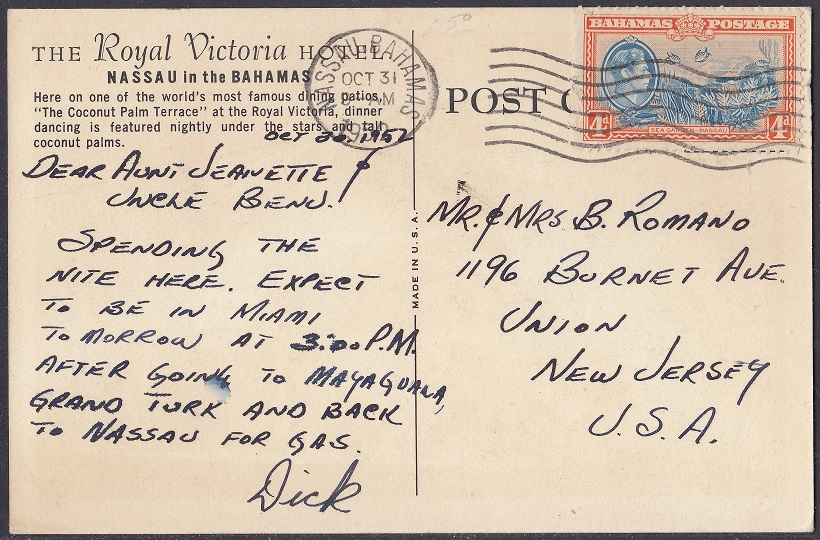 50
THE Royal Victoria HOTEL
NASSAU in the BAHAMAS
Here on one of the world's most famous dining patios,
"The Coconut Palm Terrace" at the Royal Victoria, dinner
dancing is featured nightly under the stars and tall
coconut palms.
NASSAU BAHAMAS
OCT 31
AM
POST C
BAHAMAS POSTAGE
4d
SEA GARDEN-NASSAU
4d
MADE IN U.S.A.
OCT 30, 1952
DEAR AUNT JEANETTE &
UNCLE BENU.
SPENDING THE
NITE HERE. EXPECT
TO BE IN MIAMI
TO MORROW AT 3:00 P.M.
AFTER GOING TO MAYAGUANA,
GRAND TURK AND BACK
TO NASSAU FOR GAS.
Dick
MR. & MRS B. ROMANO
1196 BURNET AVE.
UNION
NEW JERSEY
U.S.A.